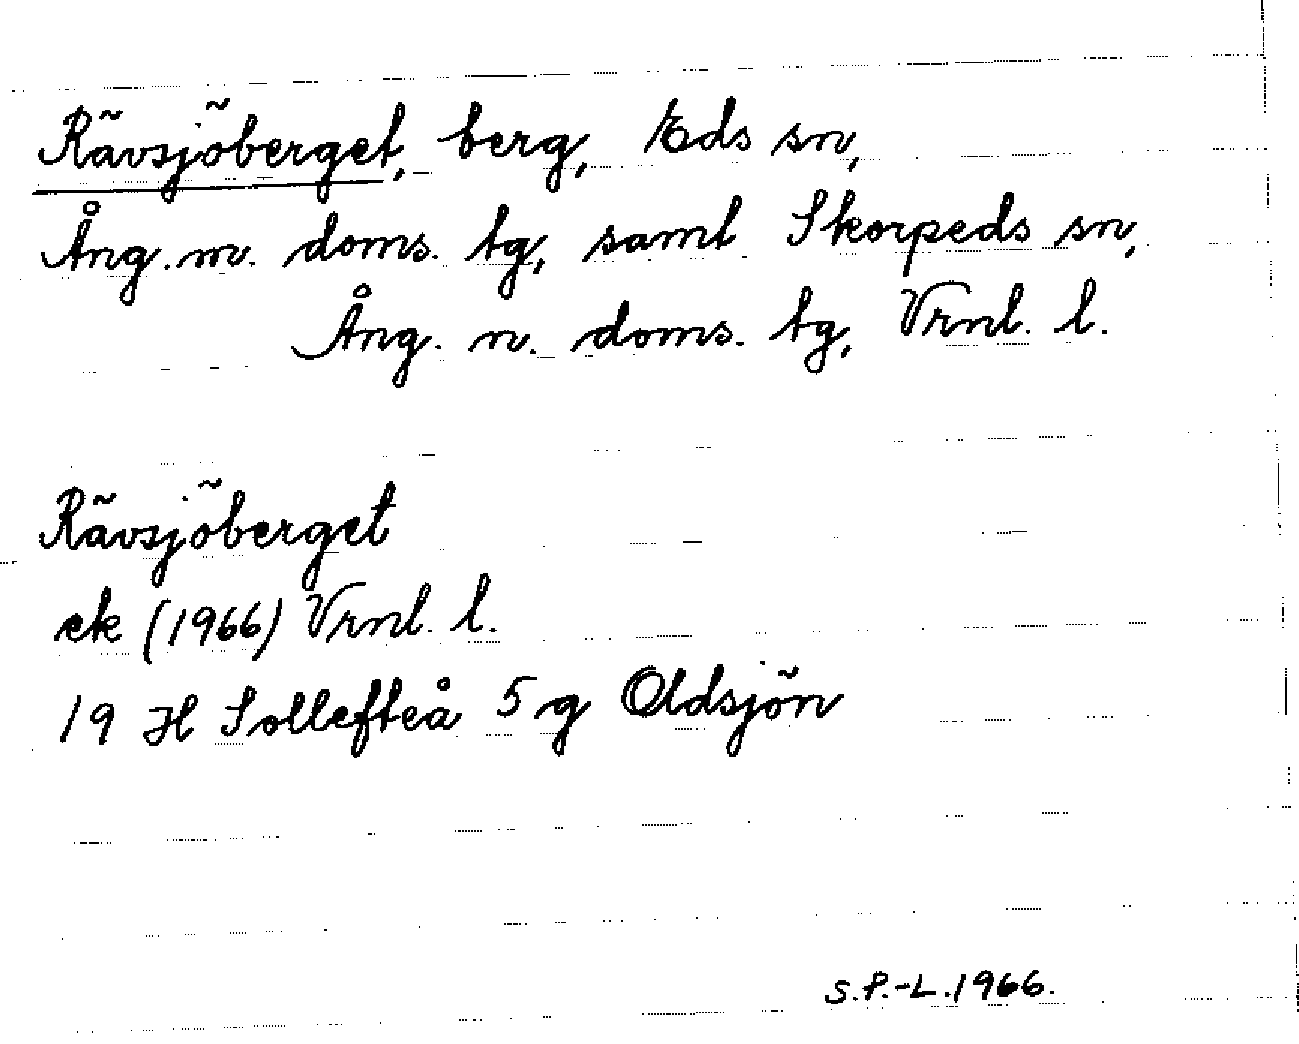 Rävsjöberget, berg, Eds sn,
Ång. m. doms. tg, samt Skorpeds sn,
Ång. n. doms. tg, Vrnl. l.
Rävsjöberget
ek (1966) Vrnl. l.
19 H Sollefteå 5 g Oldsjön
S.P.-L.1966.